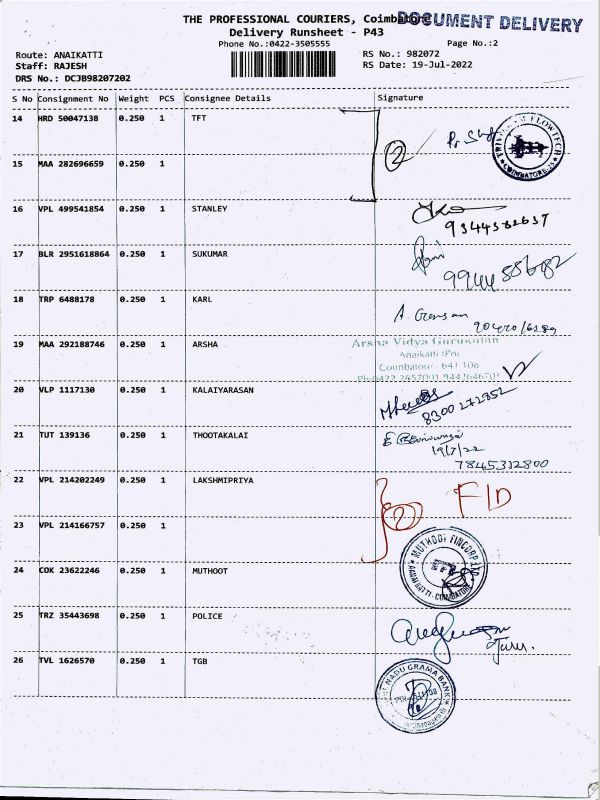 THE PROFESSIONAL COURIERS, Coimbatore
DOCUMENT DELIVERY
Delivery Runsheet - P43
Phone No.:0422-3505555
Page No.:2
Route: ANAIKATTI
RS No.: 982072
Staff: RAJESH
RS Date: 19-Jul-2022
DRS No.: DCJB98207202
S No Consignment No Weight PCS Consignee Details Signature
14 HRD 50047138 0.250 1 TFT
2
15 MAA 282696659 0.250 1
16 VPL 499541854 0.250 1 STANLEY
17 BLR 2951618864 0.250 1 SUKUMAR
18 TRP 6488178 0.250 1 KARL
19 MAA 292188746 0.250 1 ARSHA
Arsha Vidya Gurukulam
Anaikatti (Po)
Coimbatore - 641 108
20 VLP 1117130 0.250 1 KALAIYARASAN
8300272352
21 TUT 139136 0.250 1 THOOTAKALAI
19/7/22
7845312800
22 VPL 214202249 0.250 1 LAKSHMIPRIYA
2 F/D
23 VPL 214166757 0.250 1
24 COK 23622246 0.250 1 MUTHOOT
MUTHOOT FINCORP LTD
25 TRZ 35443698 0.250 1 POLICE
26 TVL 1626570 0.250 1 TGB
NADU GRAMA BANK